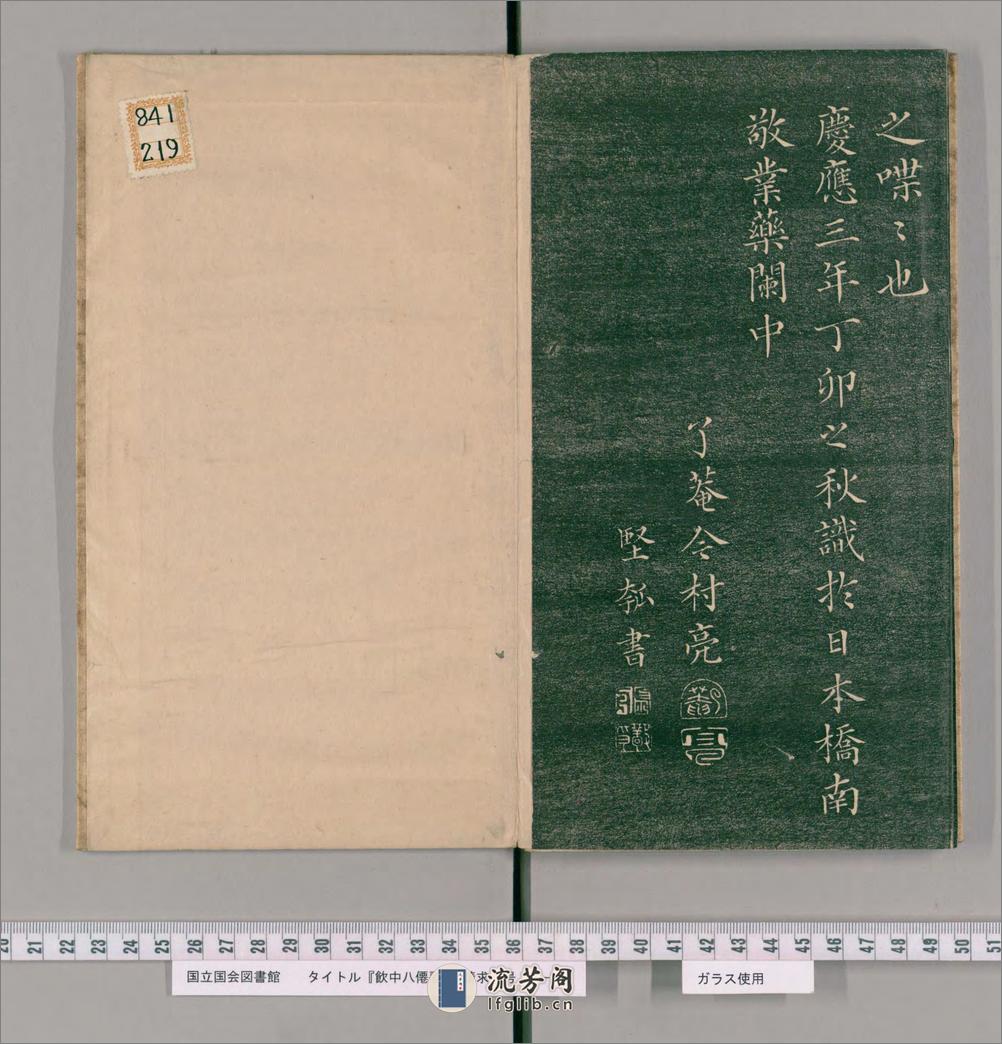 之喋〻也
慶應三年丁卯之秋識於日本橋南
敬業藥闌中
了菴今村亮
堅瓠書
841
219
20 21 22 23 24 25 26 27 28 29 30 31 32 33 34 35 36 37 38 39 40 41 42 43 44 45 46 47 48 49 50 51
国立国会図書館 タイトル『飲中八僊 求 号
ガラス使用
流芳阁
lfglib.cn